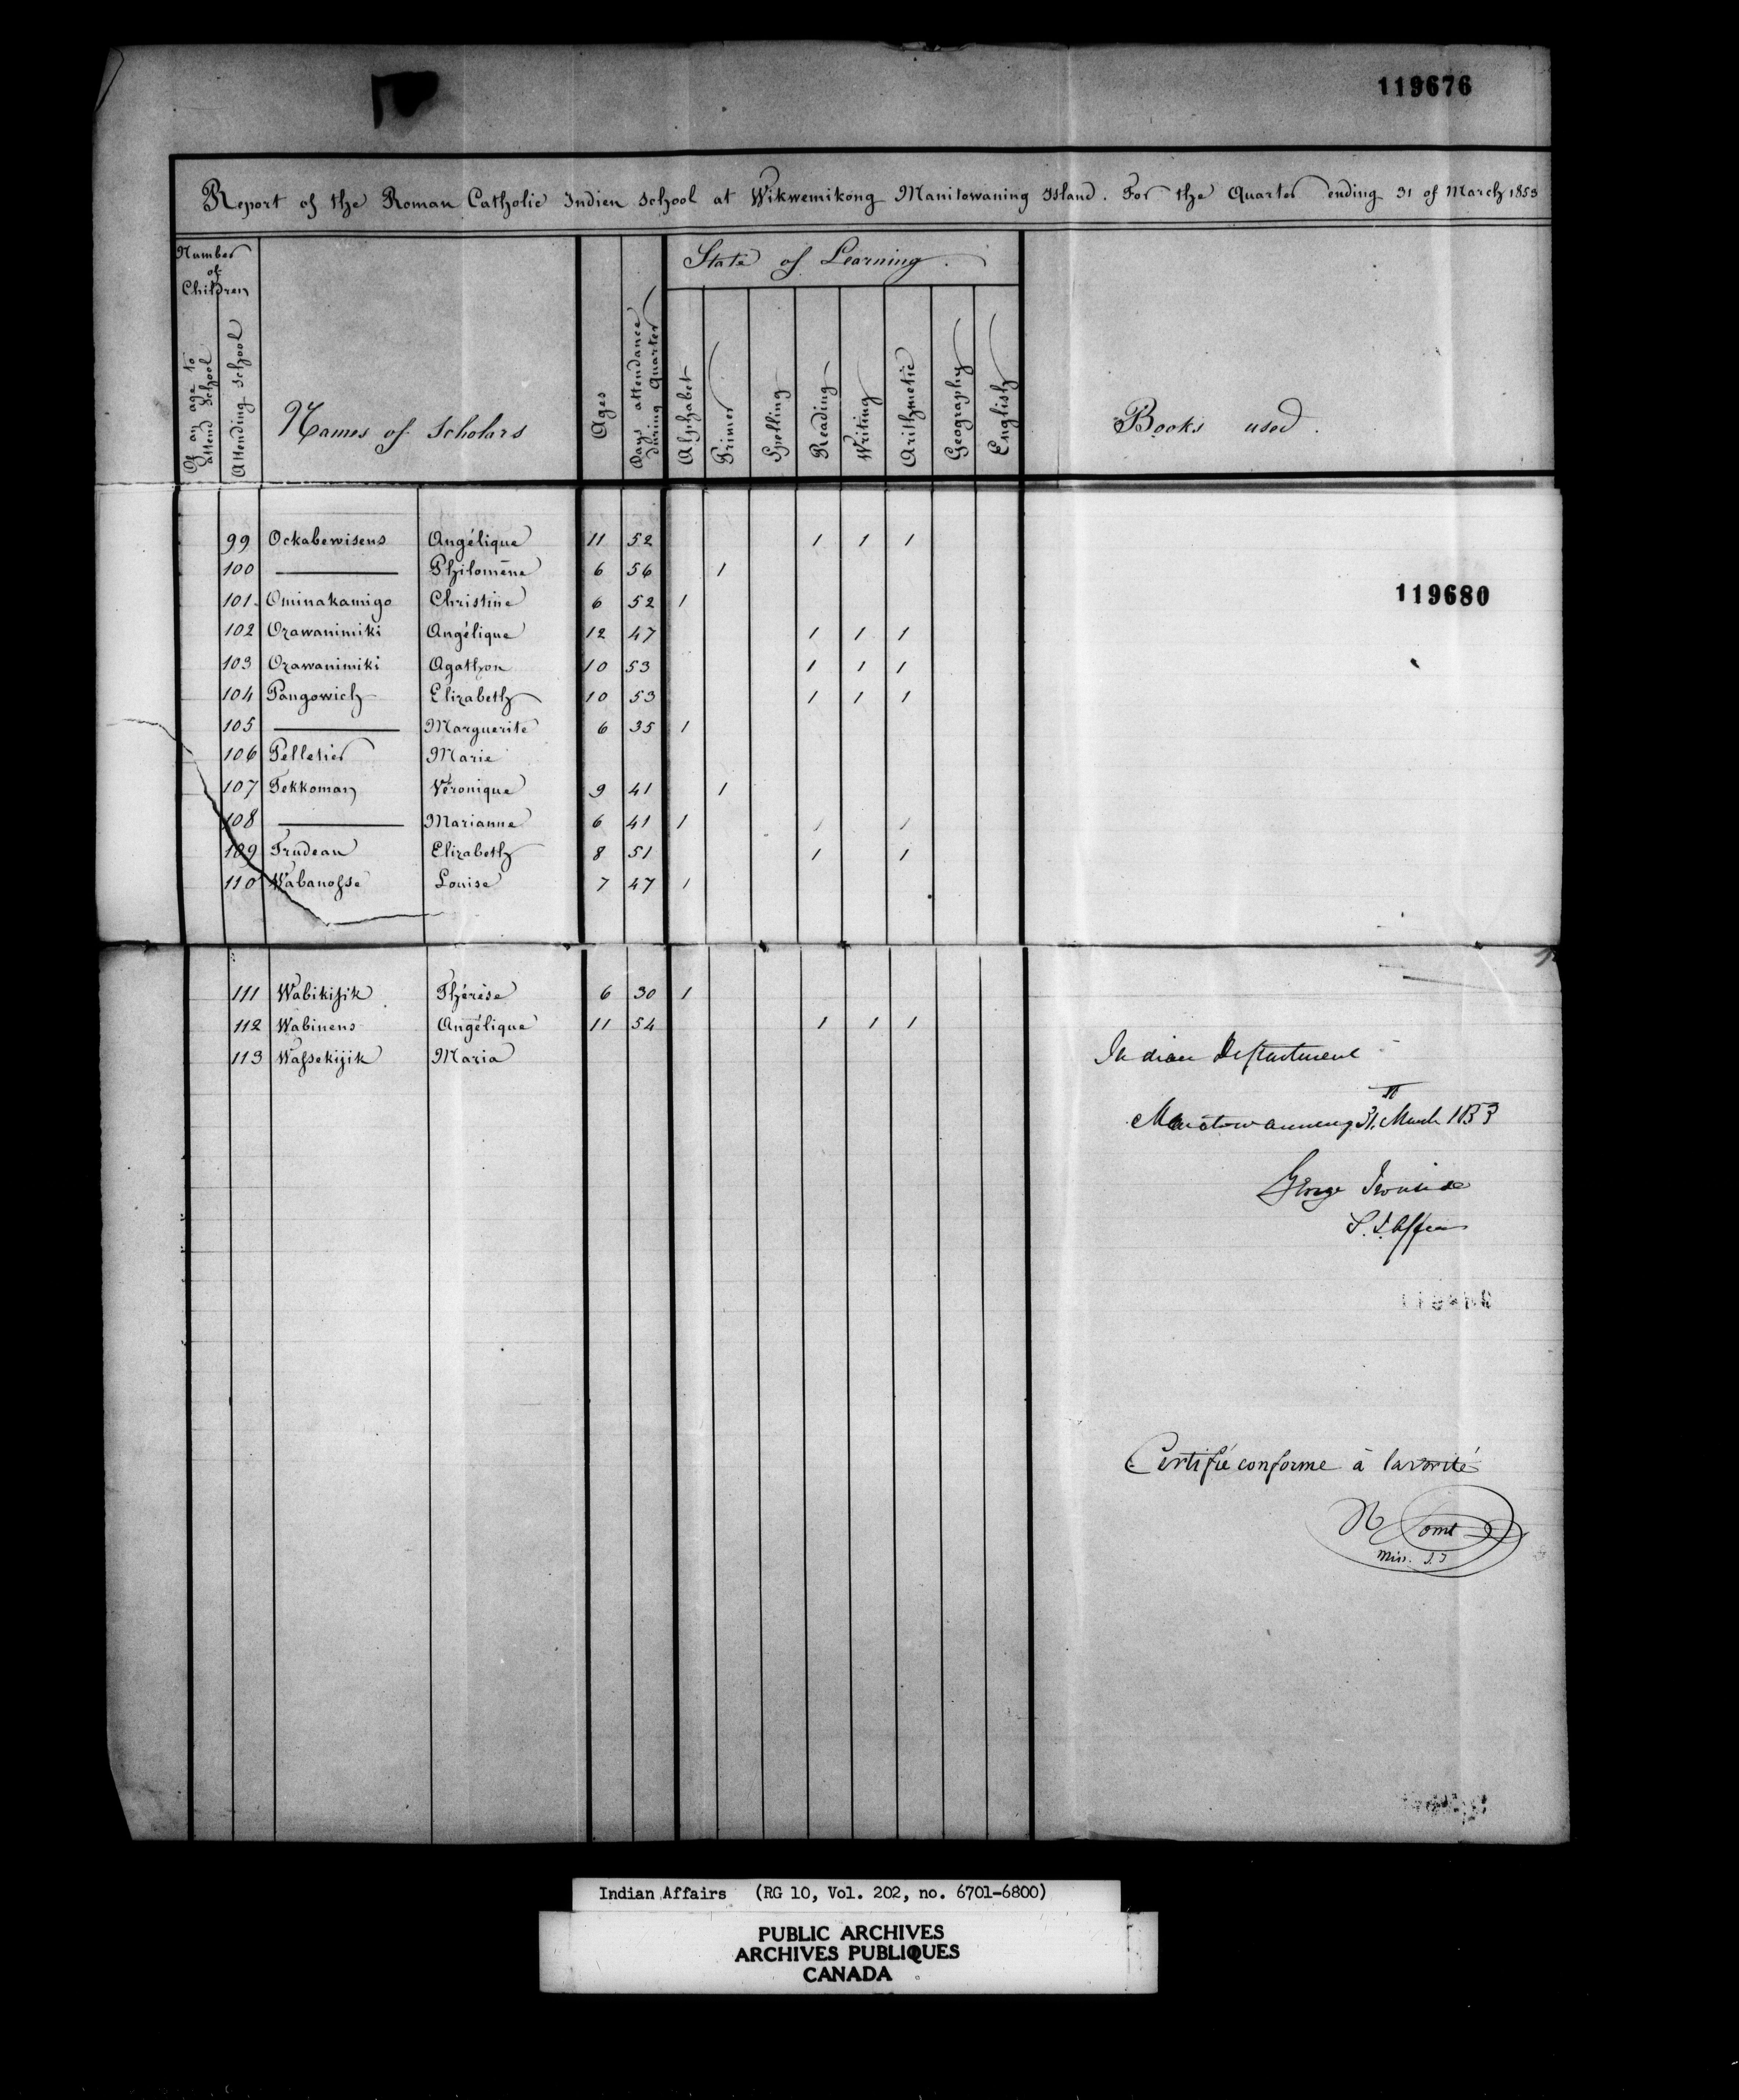 119676
Report of the Roman Catholic Indien School at Wikwemikong Manitowaning Island. For the Quarter ending 31 of March 1853
Number of Children
Of an age to attend School
Attending School
Names of Scholars
Ages
Days attendance during Quarter
State of Learning.
Alphabet
Primer
Spelling
Reading
Writing
Arithmetic
Geography
English
Books used.
99 Ockabewisens Angélique 11 52 1 1 1
100 —— Philomène 6 56 1
119680
101 Ominakamigo Christine 6 52 1
102 Ozawanimiki Angélique 12 47 1 1 1
103 Ozawanimiki Agathon 10 53 1 1 1
104 Pangowich Elizabeth 10 53 1 1 1
105 —— Marguerite 6 35 1
106 Pelletier Marie
107 Tekkoman Véronique 9 41 1
108 —— Marianne 6 41 1 1 1
109 Trudeau Elizabeth 8 51 1 1
110 Wabanosse Louise 7 47 1
111 Wabikijik Thérèse 6 30 1
112 Wabinens Angélique 11 54 1 1 1
113 Wassekijik Maria
Indian Department
Manitowanning 31st March 1853
George Ironside
S. I. Affairs
Certifié conforme à la vérité
Miss. S.J
Indian Affairs (RG 10, Vol. 202, no. 6701-6800)
PUBLIC ARCHIVES
ARCHIVES PUBLIQUES
CANADA